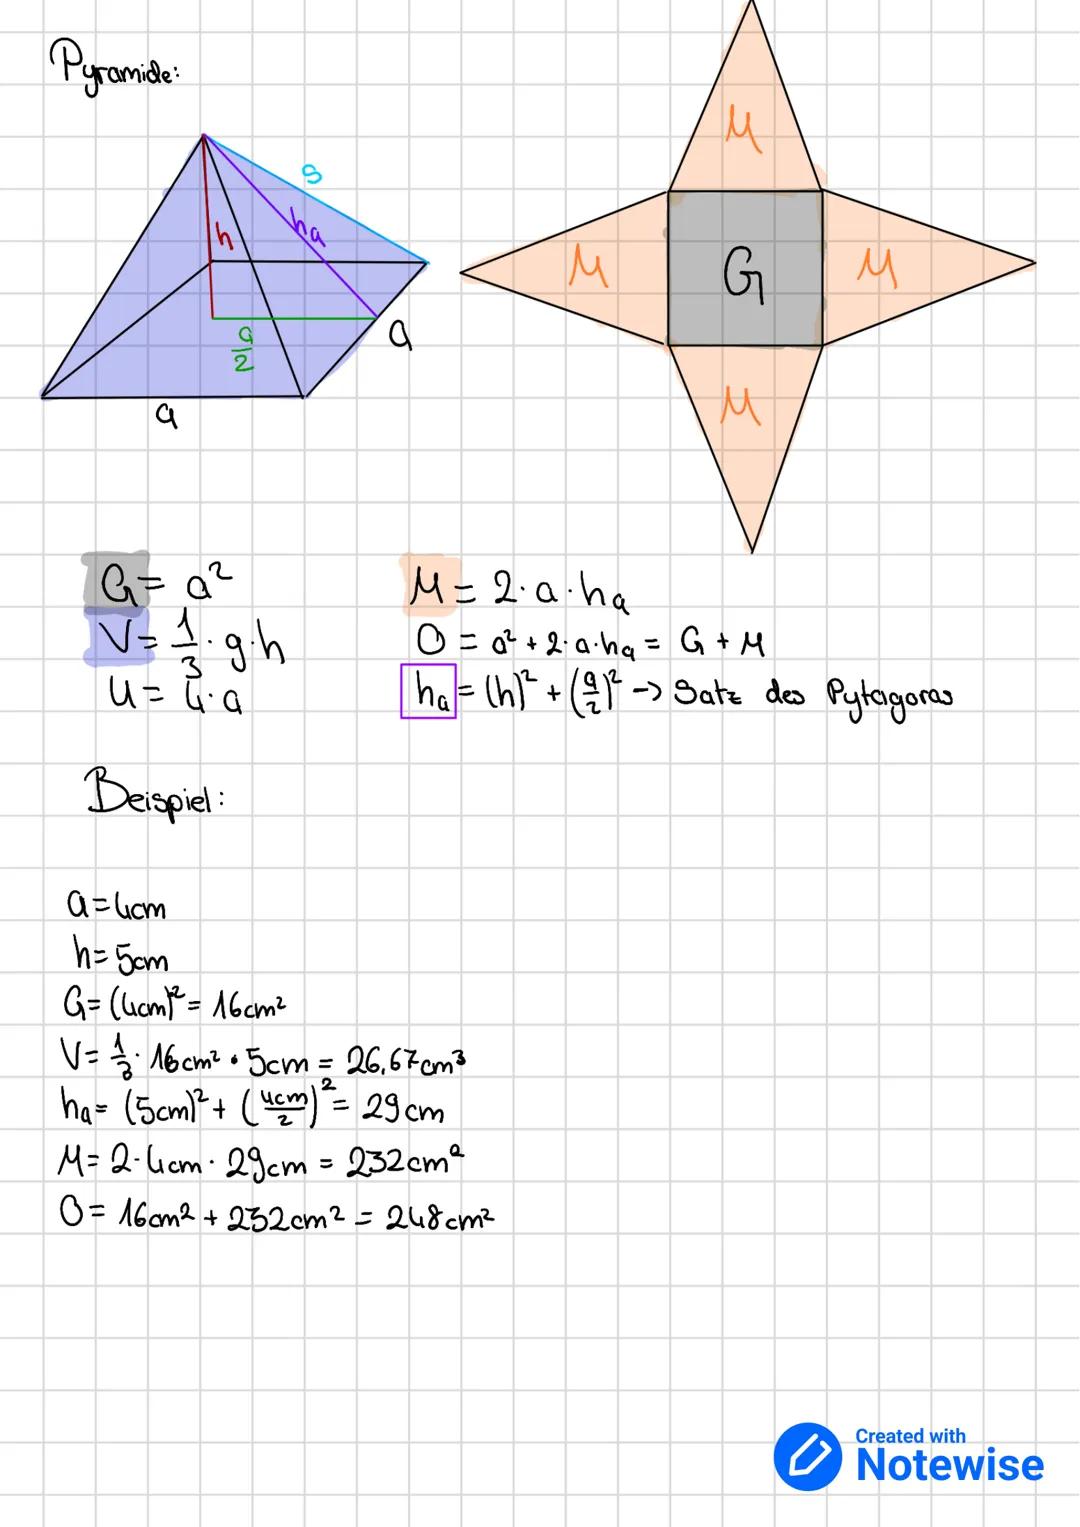 Pyramide:
s
h
ha
a/2
a
a
M
M
G
M
M
G = a²
V = 1/3 · g · h
U = 4 · a
M = 2 · a · ha
O = a² + 2 · a · ha = G + M
ha = (h)² + (a/2)² -> Satz des Pytagoras
Beispiel:
a = 4cm
h = 5cm
G = (4cm)² = 16cm²
V = 1/3 · 16cm² · 5cm = 26,67cm³
ha = (5cm)² + (4cm/2)² = 29cm
M = 2 · 4cm · 29cm = 232cm²
O = 16cm² + 232cm² = 248cm²
Created with
Notewise